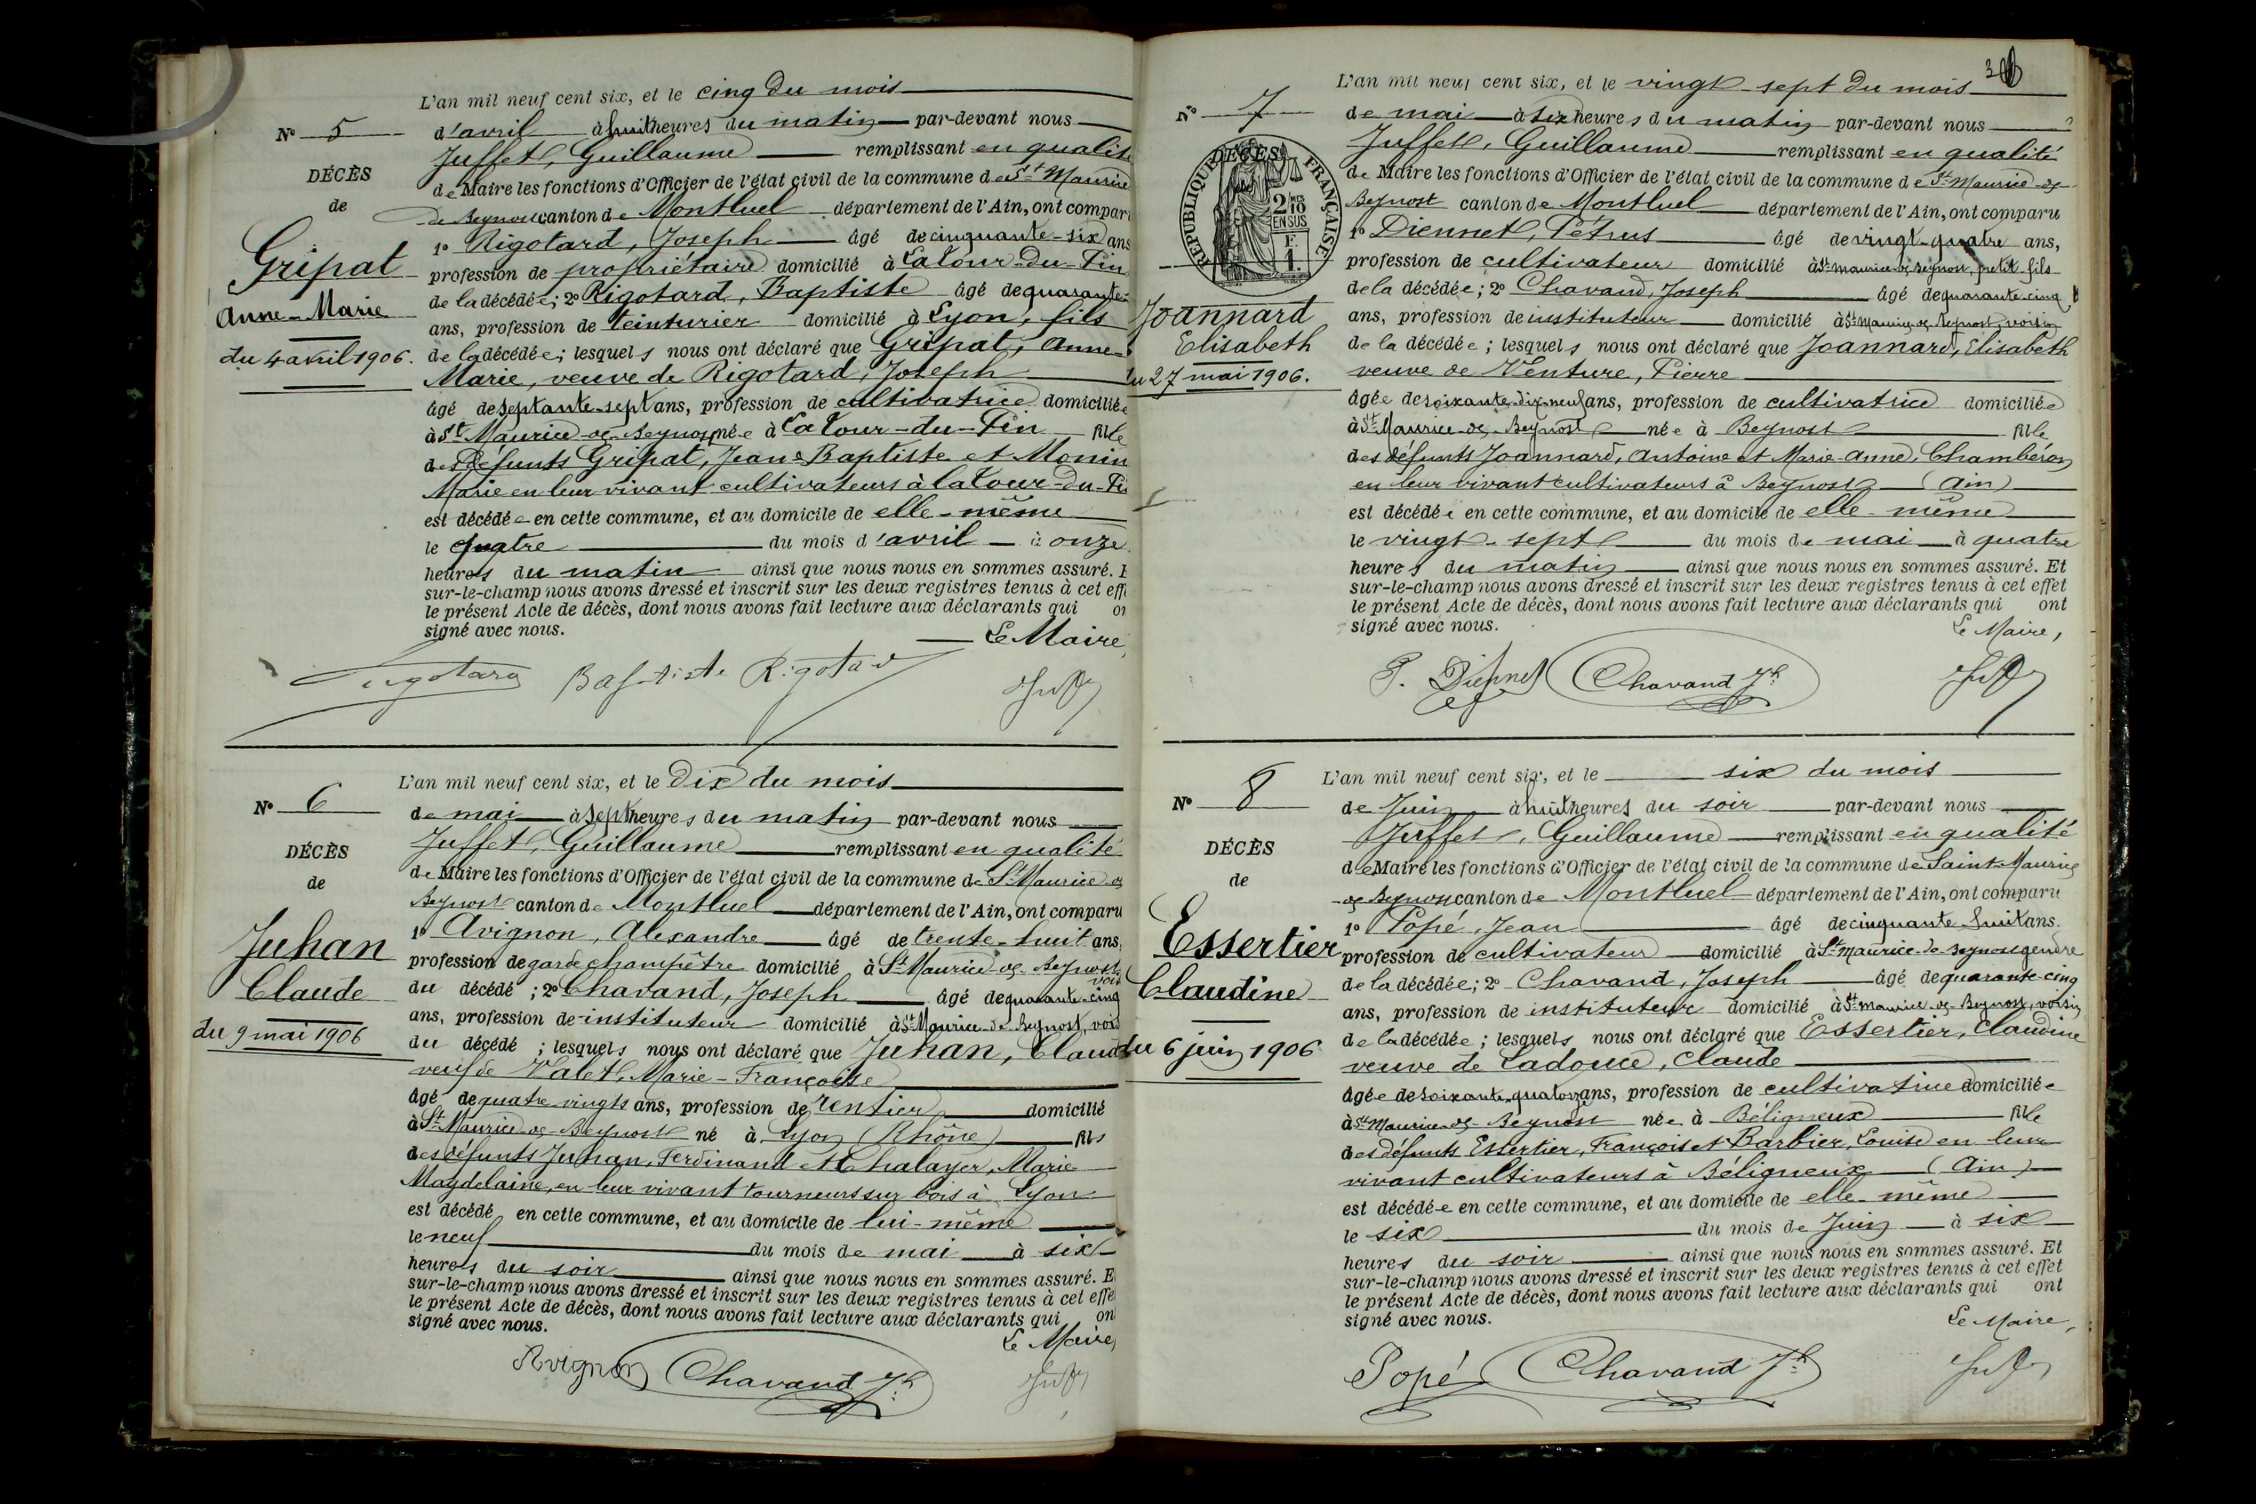 N° 5
DÉCÈS
de
Gripat
Anne-Marie
du 4 avril 1906.
L'an mil neuf cent six, et le cinq du mois
d'avril à huit heures du matin par-devant nous
Juffet, Guillaume remplissant en qualité
de Maire les fonctions d'Officier de l'état civil de la commune de St Maurice
de Beynost canton de Montluel département de l'Ain, ont comparu
1° Rigotard, Joseph âgé de cinquante-six ans
profession de propriétaire domicilié à La Tour-du-Pin
de la décédée; 2° Rigotard, Baptiste âgé de quarante-
ans, profession de teinturier domicilié à Lyon, fils
de la décédée; lesquels nous ont déclaré que Gripat, Anne-
Marie, veuve de Rigotard, Joseph
âgé de septante-sept ans, profession de cultivatrice domiciliée
à St Maurice-de-Beynost née à La Tour-du-Pin fille
des défunts Gripat, Jean-Baptiste et Monin
Marie en leur vivant cultivateurs à la Tour-du-Pin
est décédée en cette commune, et au domicile de elle-même
le quatre du mois d'avril à onze
heures du matin ainsi que nous nous en sommes assuré. E
sur-le-champ nous avons dressé et inscrit sur les deux registres tenus à cet effe
le présent Acte de décès, dont nous avons fait lecture aux déclarants qui on
signé avec nous.
Le Maire,
Rigotard Baptiste Rigotard Juffet
N° 6
DÉCÈS
de
Juhan
Claude
du 9 mai 1906
L'an mil neuf cent six, et le Dix du mois
de mai à sept heures du matin par-devant nous
Juffet, Guillaume remplissant en qualité
de Maire les fonctions d'Officier de l'état civil de la commune de St Maurice de
Beynost canton de Montluel département de l'Ain, ont comparu
1° Avignon, Alexandre âgé de trente-huit ans,
profession de garde champêtre domicilié à St Maurice de Beynost
voisin
du décédé; 2° Chavand, Joseph âgé de quarante-cinq
ans, profession de instituteur domicilié à St Maurice-de-Beynost, vois
du décédé; lesquels nous ont déclaré que Juhan, Claude
veuf de Valet, Marie-Françoise
âgé de quatre-vingts ans, profession de rentier domicilié
à St Maurice-de-Beynost né à Lyon (Rhône) fils
des défunts Juhan, Ferdinand et Chalayer, Marie
Magdelaine, en leur vivant tourneurs sur bois à Lyon
est décédé en cette commune, et au domicile de lui-même
le neuf du mois de mai à six
heures du soir ainsi que nous nous en sommes assuré. E
sur-le-champ nous avons dressé et inscrit sur les deux registres tenus à cet effe
le présent Acte de décès, dont nous avons fait lecture aux déclarants qui on
signé avec nous.
Le Maire,
Avignon Chavand Jh Juffet
N° 7
RÉPUBLIQUE FRANÇAISE
DÉCÈS
2/10 EN SUS
F.
1.
Joannard
Elisabeth
du 27 mai 1906.
L'an mil neuf cent six, et le vingt-sept du mois
de mai à six heures du matin par-devant nous
Juffet, Guillaume remplissant en qualité
de Maire les fonctions d'Officier de l'état civil de la commune de St Maurice-de-
Beynost canton de Montluel département de l'Ain, ont comparu
1° Diennet, Pétrus âgé de vingt-quatre ans,
profession de cultivateur domicilié à St Maurice-de-Beynost, petit-fils
de la décédée; 2° Chavand, Joseph âgé de quarante-cinq
ans, profession de instituteur domicilié à St Maurice-de-Beynost, voisin
de la décédée; lesquels nous ont déclaré que Joannard, Elisabeth
veuve de Venture, Pierre
âgée de soixante-dix-neuf ans, profession de cultivatrice domiciliée
à St Maurice-de-Beynost née à Beynost fille
des défunts Joannard, Antoine et Marie-Anne, Chambéron
en leur vivant cultivateurs à Beynost (Ain)
est décédée en cette commune, et au domicile de elle-même
le vingt-sept du mois de mai à quatre
heures du matin ainsi que nous nous en sommes assuré. Et
sur-le-champ nous avons dressé et inscrit sur les deux registres tenus à cet effet
le présent Acte de décès, dont nous avons fait lecture aux déclarants qui ont
signé avec nous.
Le Maire,
P. Diennet Chavand Jh Juffet
N° 8
DÉCÈS
de
Essertier
Claudine
du 6 juin 1906
L'an mil neuf cent six, et le six du mois
de Juin à huit heures du soir par-devant nous
Juffet, Guillaume remplissant en qualité
de Maire les fonctions d'Officier de l'état civil de la commune de Saint-Maurice
de Beynost canton de Montluel département de l'Ain, ont comparu
1° Popé, Jean âgé de cinquante-huit ans.
profession de cultivateur domicilié à St Maurice-de-Beynost gendre
de la décédée; 2° Chavand, Joseph âgé de quarante-cinq
ans, profession de instituteur domicilié à St Maurice-de-Beynost, voisin
de la décédée; lesquels nous ont déclaré que Essertier, Claudine
veuve de Ladouce, Claude
âgée de soixante-quatorze ans, profession de cultivatrice domiciliée
à St Maurice-de-Beynost née à Béligneux fille
des défunts Essertier, François et Barbier, Louise en leur
vivant cultivateurs à Béligneux (Ain)
est décédée en cette commune, et au domicile de elle-même
le six du mois de Juin à six
heures du soir ainsi que nous nous en sommes assuré. Et
sur-le-champ nous avons dressé et inscrit sur les deux registres tenus à cet effet
le présent Acte de décès, dont nous avons fait lecture aux déclarants qui ont
signé avec nous.
Le Maire,
Popé Chavand Jh Juffet